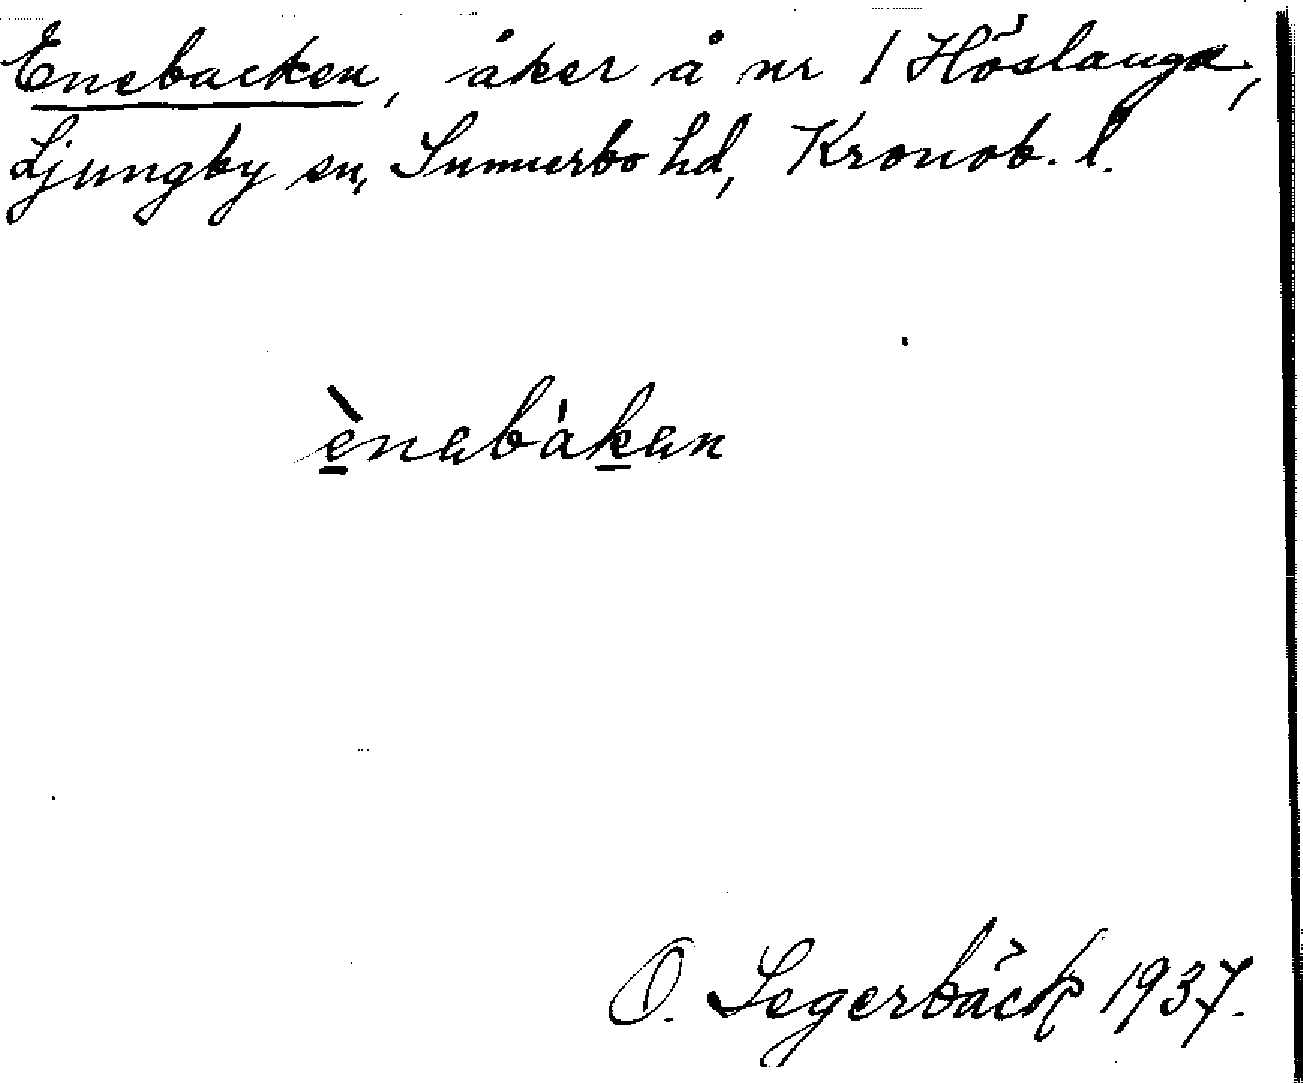 Enebacken, åker å nr 1 Höslanga,
Ljungby sn, Sunnerbo hd, Kronob. l.
ènabákan
O. Segerbäck 1937.